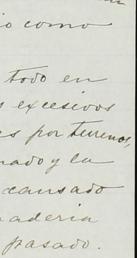 io como
todo en
s excesivos
es por terrenos,
nado y la
causado
naderia
pasado.